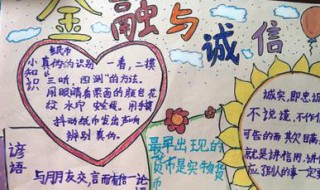 金融与诚信
纸币
小知识
真伪的识别 一看,二摸
三听,四测"的方法。
用眼睛看票面的颜色花
纹 水印 安全线。用手指
抖动纸币发出声响
辨别 真伪。
最早出现的
货币是实物货
币
诚实,即忠诚
不说谎,不作
可告的而欺瞒
就是讲信用,讲
谚语
与朋友交,言而有信一论